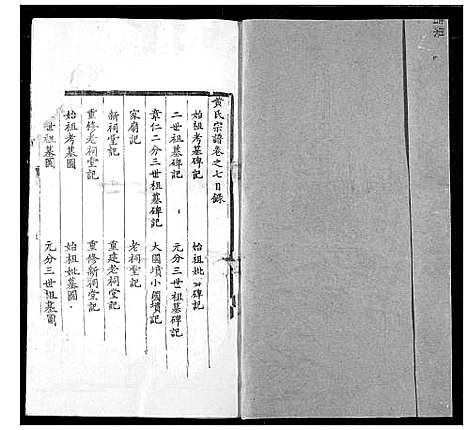 黄氏宗譜卷之七目錄
始祖考墓碑記 始祖妣 碑記
二世祖墓碑記 元分三世祖墓碑記
章仁二分三世祖墓碑記 大園墳小園墳記
家廟記 老祠堂記
新祠堂記 重建老祠堂記
重修老祠堂記 重修新祠堂記
始祖考墓圖 始祖妣墓圖
世祖墓圖 元分三世祖墓圖